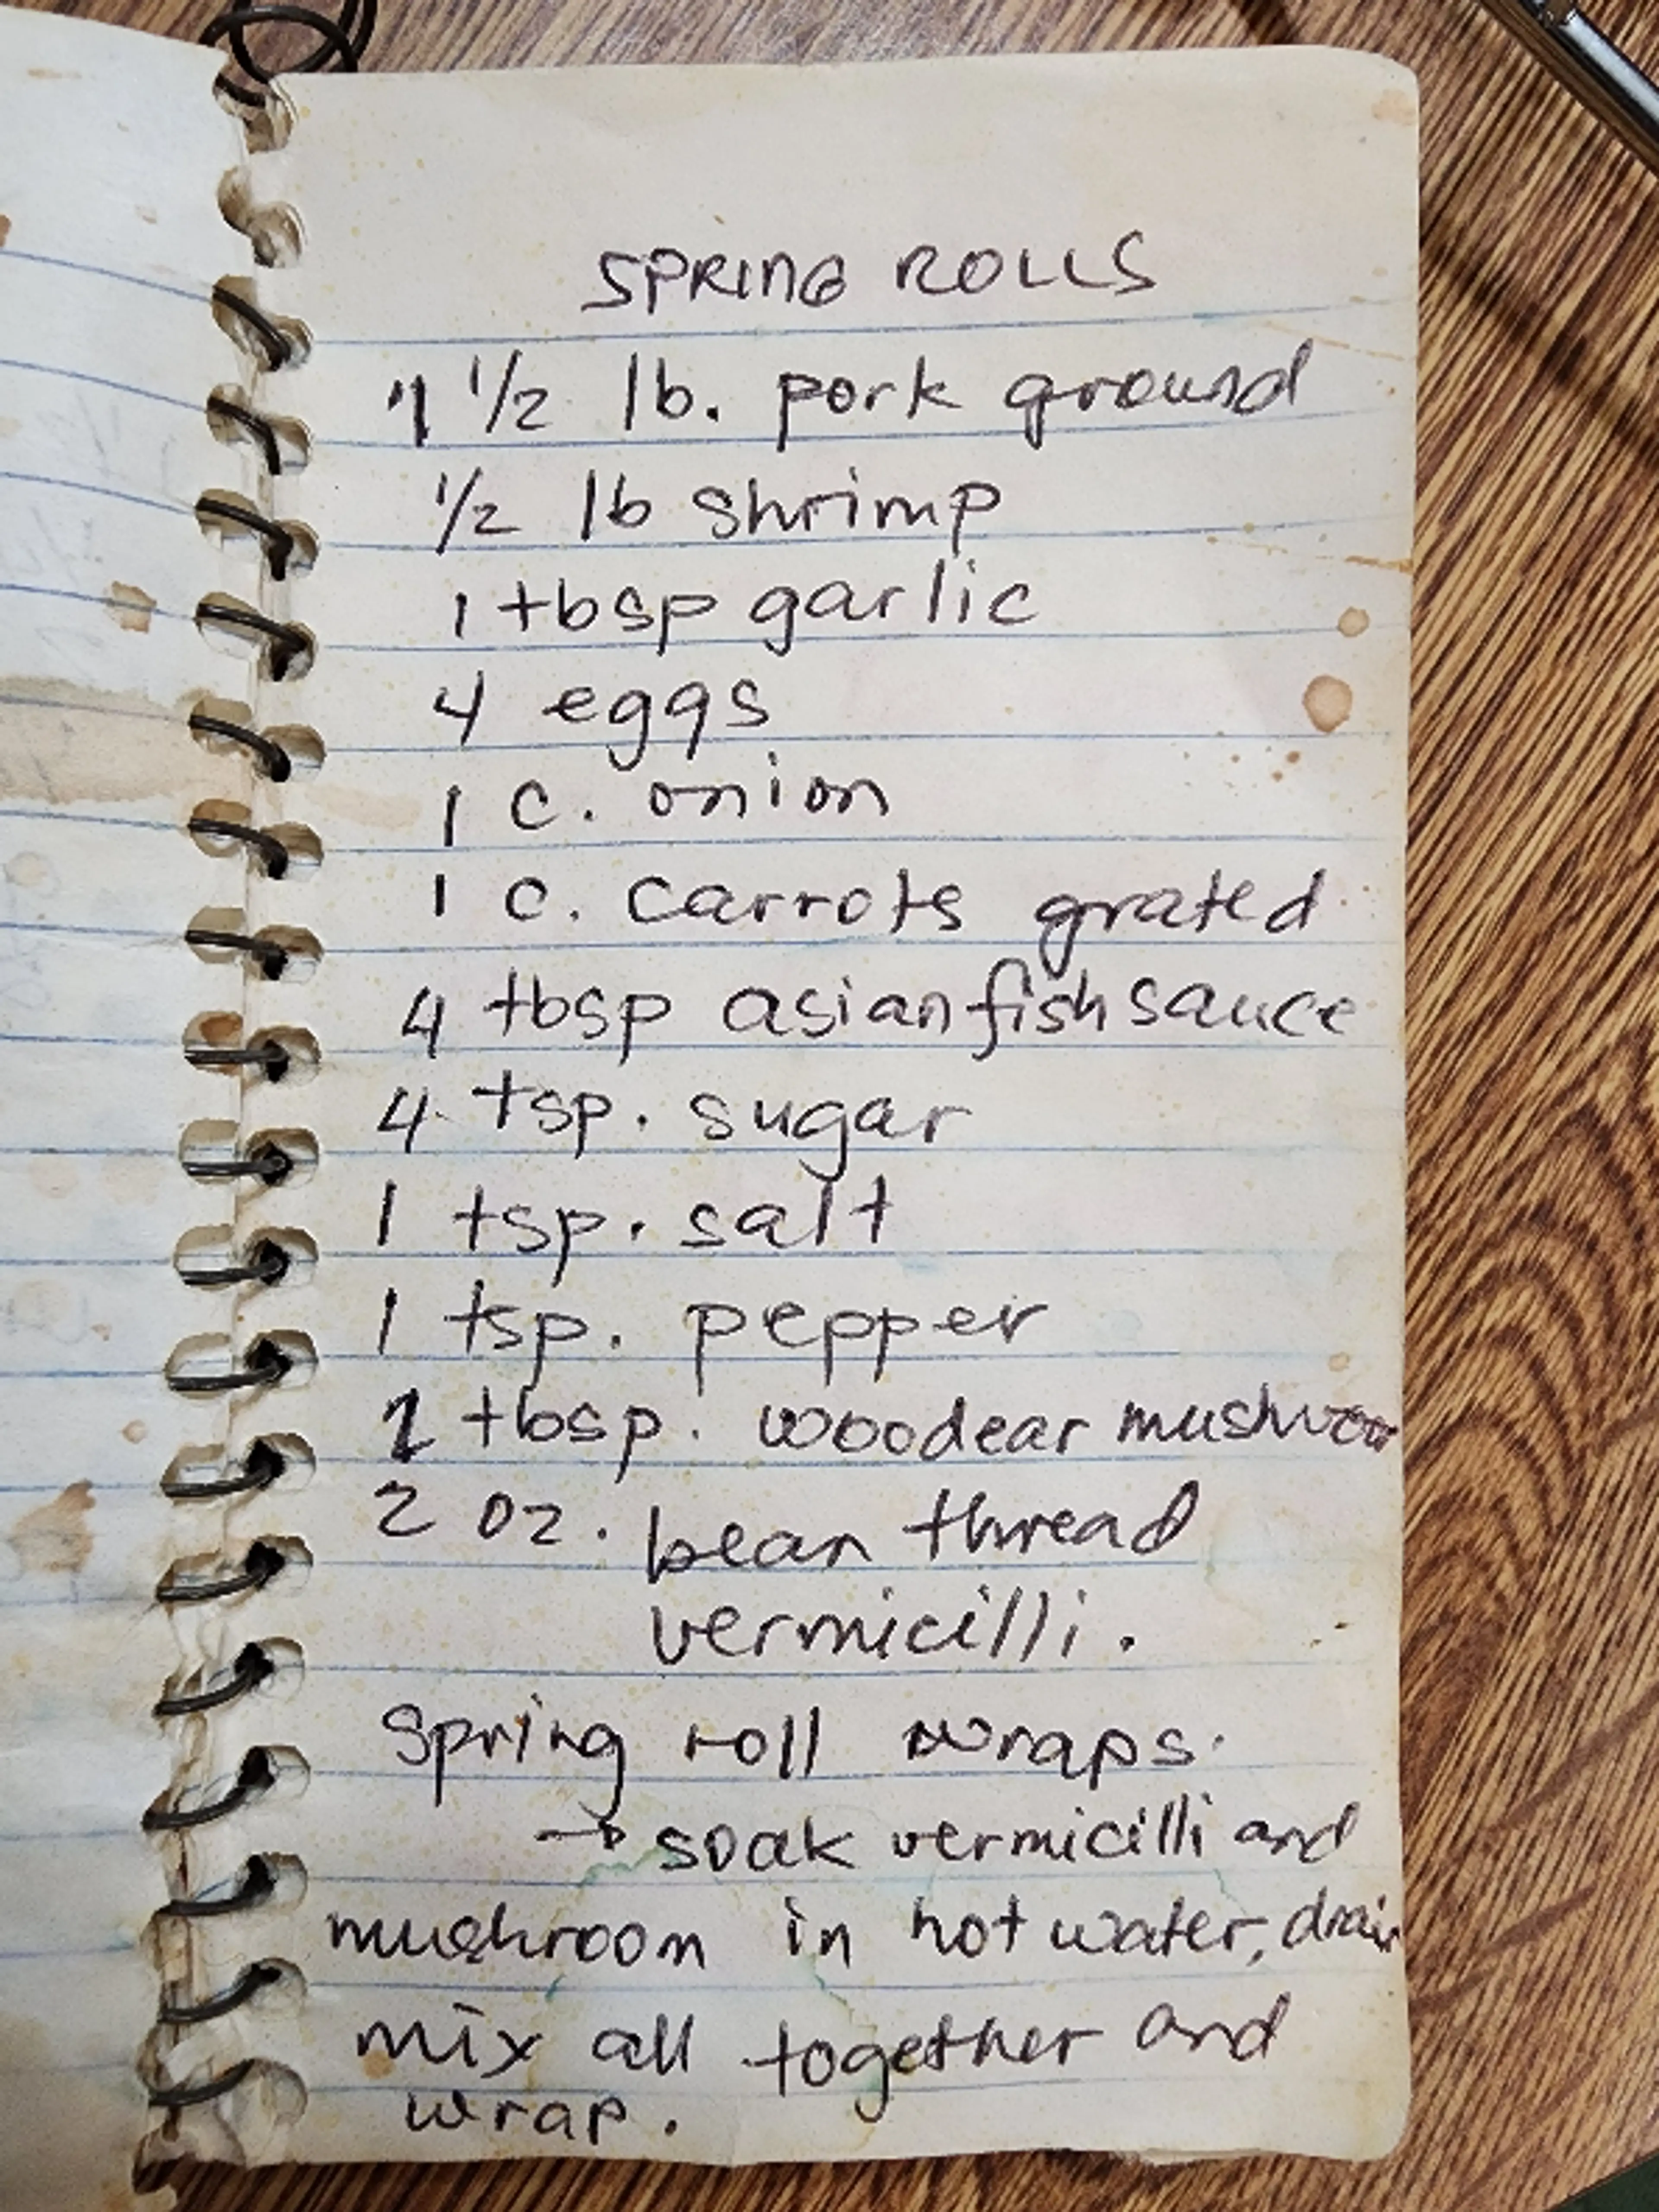 SPRING ROLLS
1 1/2 lb. pork ground
1/2 lb shrimp
1 tbsp garlic
4 eggs
1 c. onion
1 c. carrots grated
4 tbsp asian fish sauce
4 tsp. sugar
1 tsp. salt
1 tsp. pepper
tbsp. woodear mushroom
2 oz. bean thread
vermicilli.
Spring roll wraps.
→ soak vermicilli and
mushroom in hot water, drain
mix all together and
wrap.